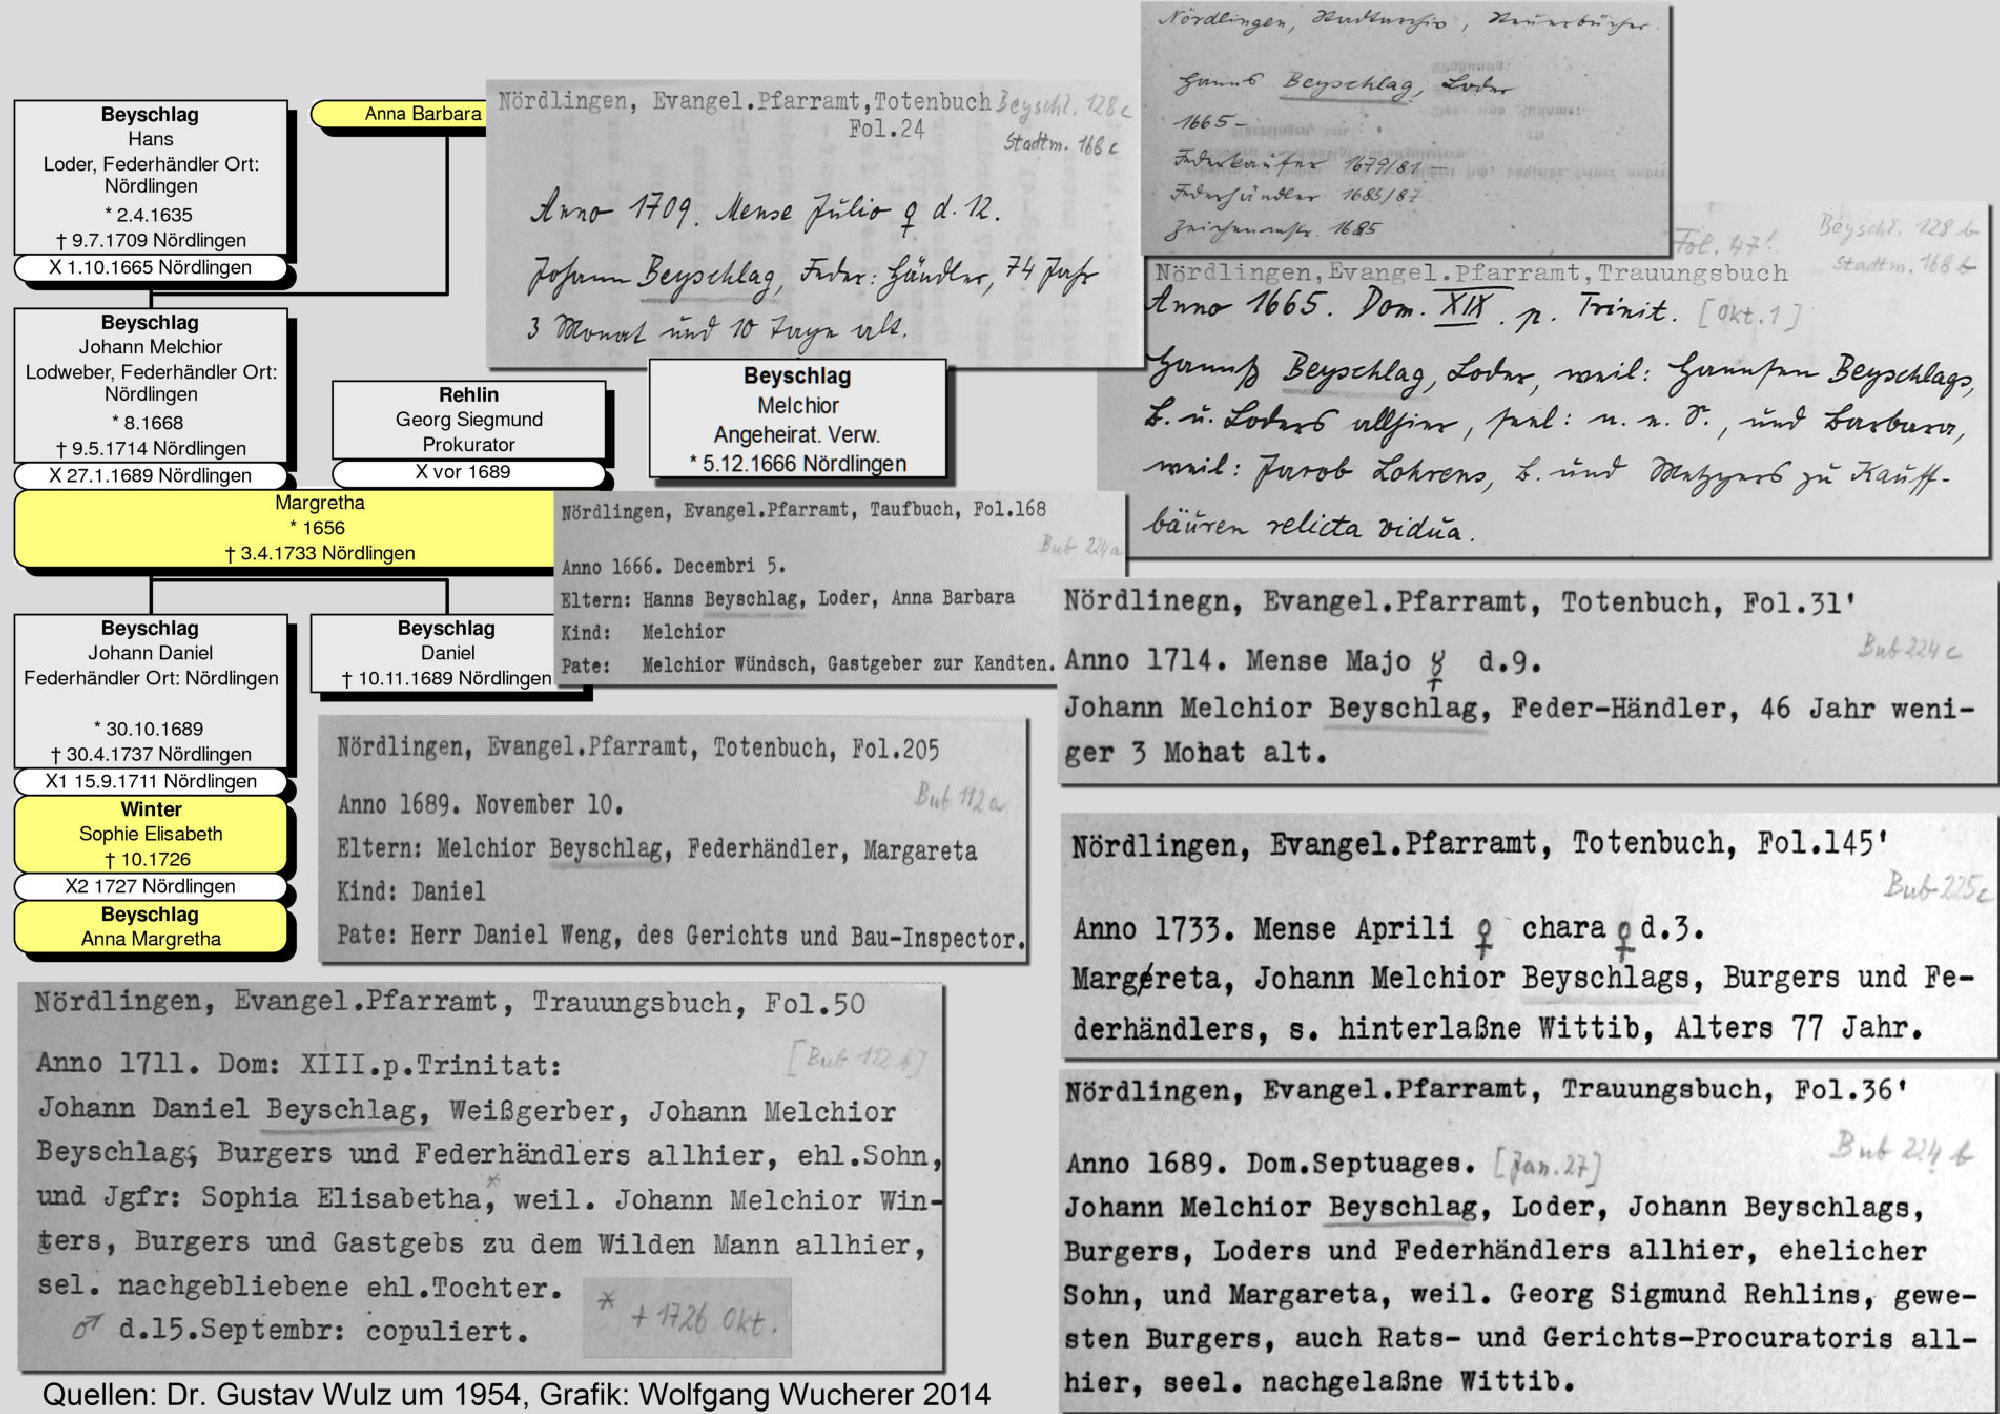 Beyschlag
Hans
Loder, Federhändler Ort:
Nördlingen
* 2.4.1635
† 9.7.1709 Nördlingen
X 1.10.1665 Nördlingen
Anna Barbara
Beyschlag
Johann Melchior
Lodweber, Federhändler Ort:
Nördlingen
* 8.1668
† 9.5.1714 Nördlingen
X 27.1.1689 Nördlingen
Rehlin
Georg Siegmund
Prokurator
X vor 1689
Margretha
* 1656
† 3.4.1733 Nördlingen
Beyschlag
Johann Daniel
Federhändler Ort: Nördlingen
* 30.10.1689
† 30.4.1737 Nördlingen
X1 15.9.1711 Nördlingen
Winter
Sophie Elisabeth
† 10.1726
X2 1727 Nördlingen
Beyschlag
Anna Margretha
Beyschlag
Daniel
† 10.11.1689 Nördlingen
Beyschlag
Melchior
Angeheirat. Verw.
* 5.12.1666 Nördlingen
Nördlingen, Evangel.Pfarramt,Totenbuch Beyschl. 128c
Fol.24
Stadtm. 168c
Anno 1709. Mense Julio ♀ d. 12.
Johann Beyschlag, Feder: Händler, 74 Jahr
3 Monat und 10 Tage alt.
Nördlingen, Stadtarchiv, Steuerbücher.
Hanns Beyschlag, Loder
1665–
Federkäufer 1679/81
Federhändler 1685/87
1685
Fol. 47'
Beyschl. 128b
Stadtm. 168b
Nördlingen,Evangel.Pfarramt,Trauungsbuch
Anno 1665. Dom. XIX. p. Trinit. [Okt.1]
Hannß Beyschlag, Loder, weil: Hannsen Beyschlags,
B. u. Loders allhier, seel: n. e. S., und Barbara,
weil: Jacob Lohrens, B. und Metzgers zu Kauff-
bäuren relicta vidua.
Nördlingen, Evangel.Pfarramt, Taufbuch, Fol.168
Bub 224a
Anno 1666. Decembri 5.
Eltern: Hanns Beyschlag, Loder, Anna Barbara
Kind: Melchior
Pate: Melchior Wündsch, Gastgeber zur Kandten.
Nördlinegn, Evangel.Pfarramt, Totenbuch, Fol.31'
Bub 224c
Anno 1714. Mense Majo ☿ d.9.
Johann Melchior Beyschlag, Feder-Händler, 46 Jahr weni-
ger 3 Mohat alt.
Nördlingen, Evangel.Pfarramt, Totenbuch, Fol.205
Bub 112a
Anno 1689. November 10.
Eltern: Melchior Beyschlag, Federhändler, Margareta
Kind: Daniel
Pate: Herr Daniel Weng, des Gerichts und Bau-Inspector.
Nördlingen, Evangel.Pfarramt, Totenbuch, Fol.145'
Bub 225c
Anno 1733. Mense Aprili ♀ chara ♀ d.3.
Margereta, Johann Melchior Beyschlags, Burgers und Fe-
derhändlers, s. hinterlaßne Wittib, Alters 77 Jahr.
Nördlingen, Evangel.Pfarramt, Trauungsbuch, Fol.50
[Bub 112b]
Anno 1711. Dom: XIII.p.Trinitat:
Johann Daniel Beyschlag, Weißgerber, Johann Melchior
Beyschlags, Burgers und Federhändlers allhier, ehl.Sohn,
und Jgfr: Sophia Elisabetha,* weil. Johann Melchior Win-
ters, Burgers und Gastgebs zu dem Wilden Mann allhier,
sel. nachgebliebene ehl.Tochter.
♂ d.15.Septembr: copuliert.
* + 1726 Okt.
Nördlingen, Evangel.Pfarramt, Trauungsbuch, Fol.36'
Bub 224b
Anno 1689. Dom.Septuages. [Jan.27]
Johann Melchior Beyschlag, Loder, Johann Beyschlags,
Burgers, Loders und Federhändlers allhier, ehelicher
Sohn, und Margareta, weil. Georg Sigmund Rehlins, gewe-
sten Burgers, auch Rats- und Gerichts-Procuratoris all-
hier, seel. nachgelaßne Wittib.
Quellen: Dr. Gustav Wulz um 1954, Grafik: Wolfgang Wucherer 2014